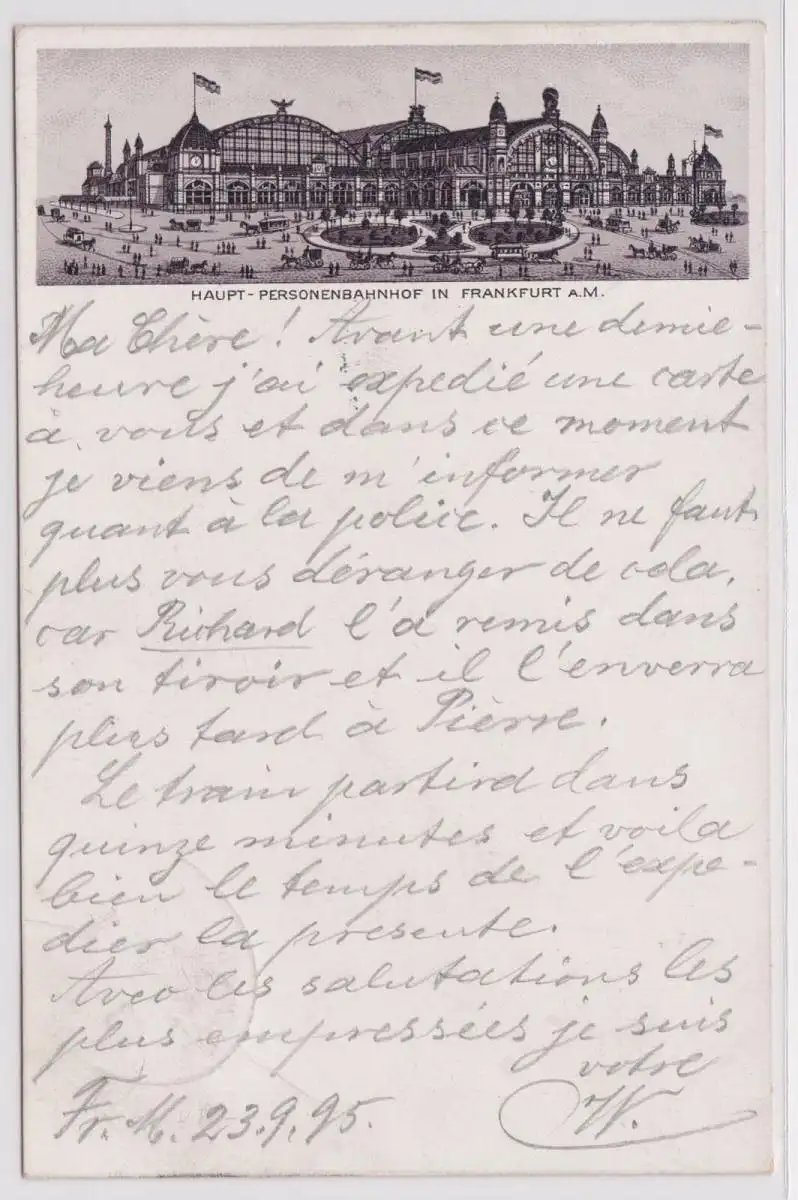 HAUPT-PERSONENBAHNHOF IN FRANKFURT A.M.
Ma Chère! Avant une demie-
heure j'ai expedié une carte
à vous et dans ce moment
je viens de m'informer
quant à la police. Il ne faut
plus vous déranger de cela,
car Richard l'a remis dans
son tiroir et il l'enverra
plus tard à Pièrre.
Le train partira dans
quinze minutes et voila
bien le temps de l'expe-
dier la presente.
Avec les salutations les
plus empressées je suis
votre
Fr. M. 23.9.95. W.